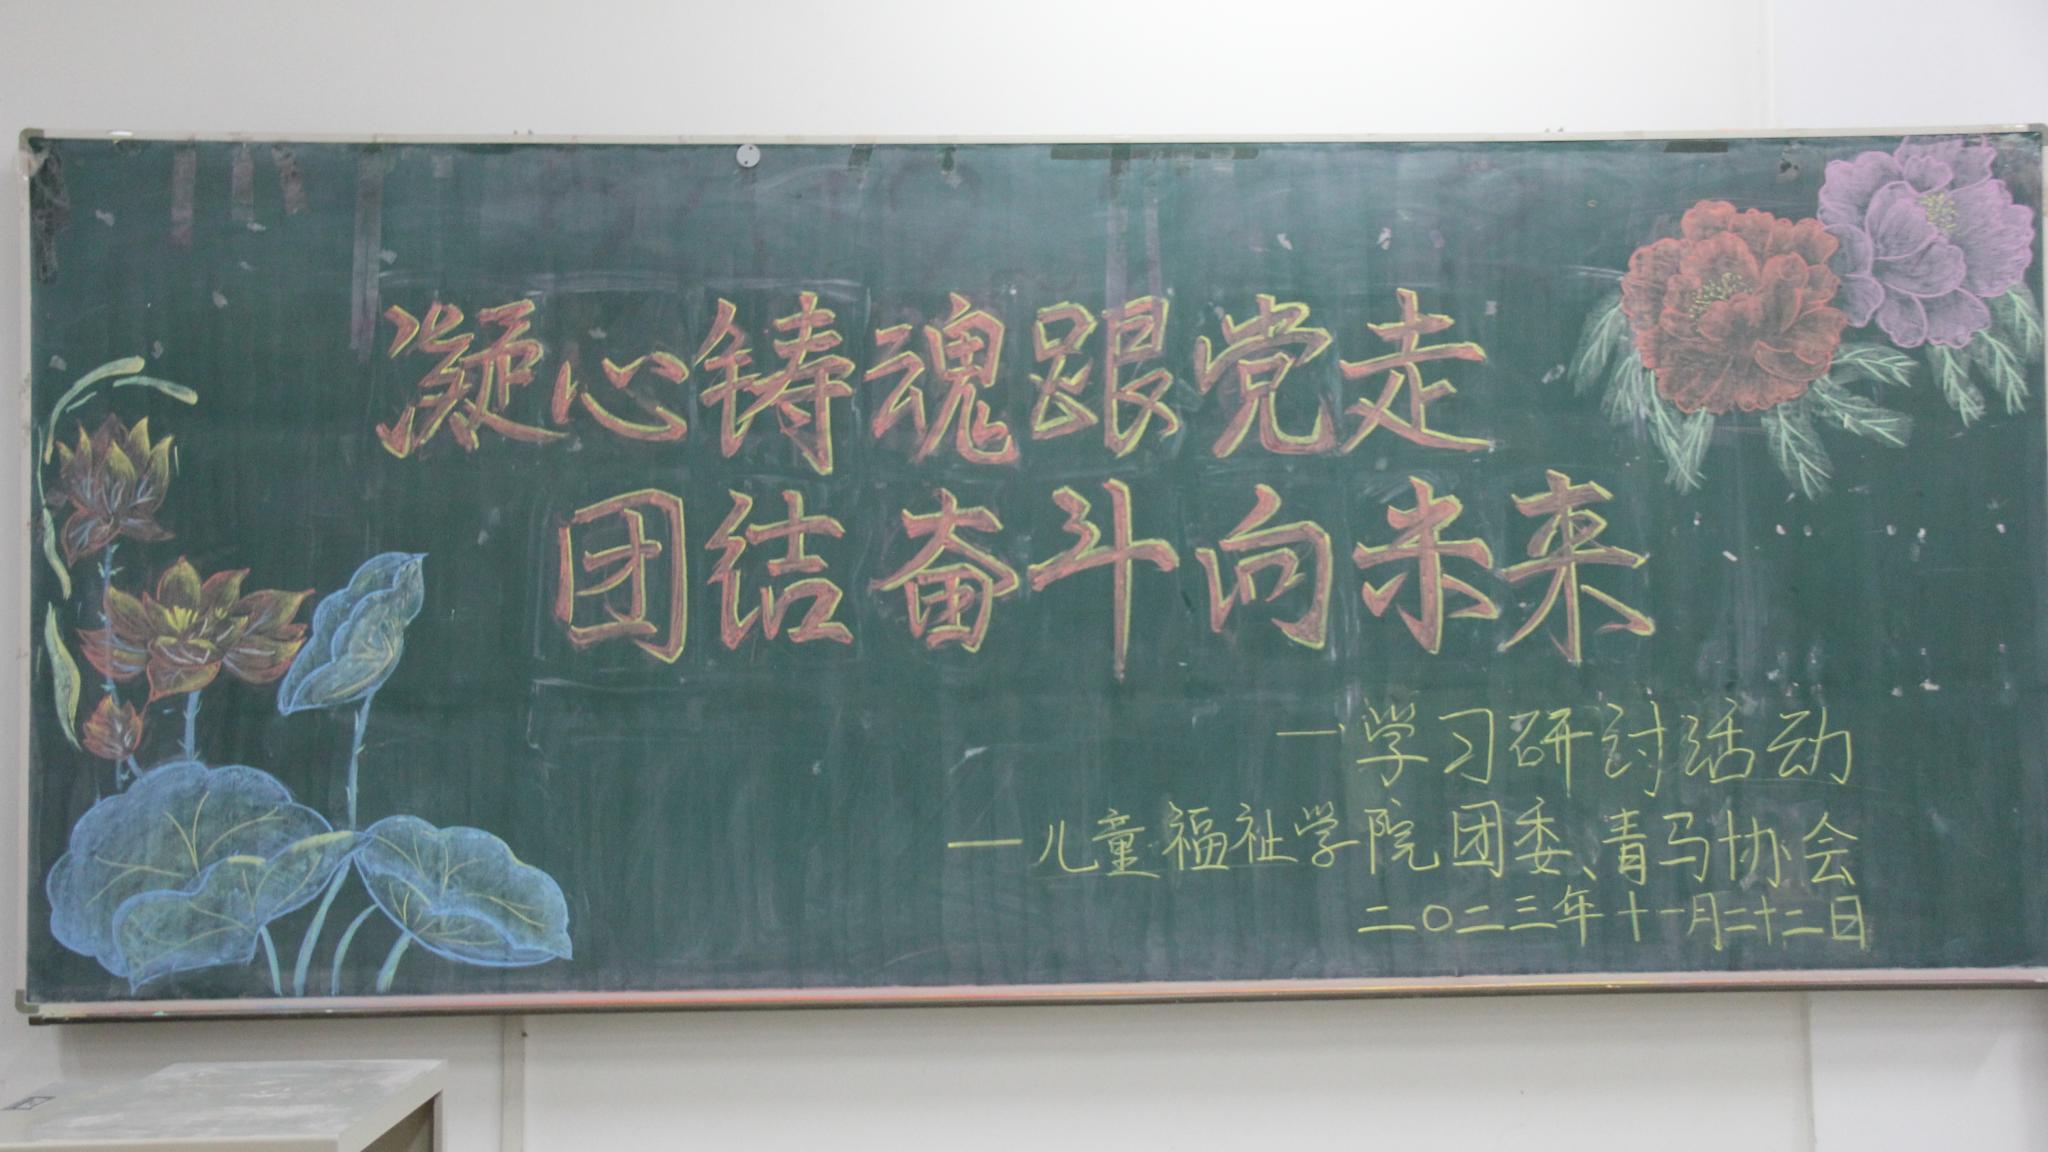 凝心铸魂跟党走
团结奋斗向未来
一学习研讨活动
一儿童福祉学院团委、青马协会
二〇二三年十一月二十二日